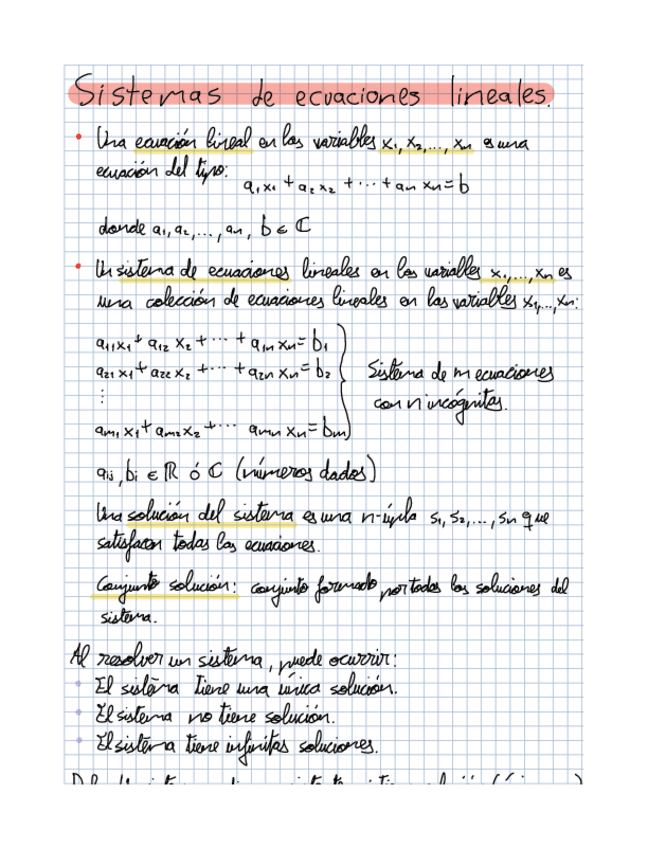 Sistemas de ecuaciones lineales.
• Una ecuación lineal en las variables x₁, x₂, ..., xₙ es una
ecuación del tipo:
a₁x₁ + a₂x₂ + ... + aₙxₙ = b
donde a₁, a₂, ..., aₙ, b ∈ ℂ
• Un sistema de ecuaciones lineales en las variables x₁, ..., xₙ es
una colección de ecuaciones lineales en las variables x₁, ..., xₙ:
a₁₁x₁ + a₁₂x₂ + ... + a₁ₙxₙ = b₁
a₂₁x₁ + a₂₂x₂ + ... + a₂ₙxₙ = b₂
⋮
aₘ₁x₁ + aₘ₂x₂ + ... aₘₙxₙ = bₘ
Sistema de m ecuaciones
con n incógnitas.
aᵢⱼ, bᵢ ∈ ℝ ó ℂ (números dados)
Una solución del sistema es una n-úpla s₁, s₂, ..., sₙ que
satisfacen todas las ecuaciones.
Conjunto solución: conjunto formado por todas las soluciones del
sistema.
Al resolver un sistema, puede ocurrir:
• El sistema tiene una única solución.
• El sistema no tiene solución.
• El sistema tiene infinitas soluciones.